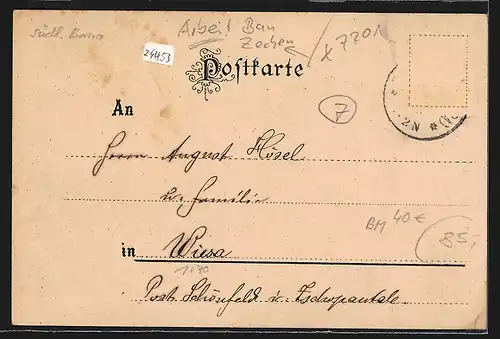 Südl. Borna
Arbeit Bau
Zechen
x 7201
24453
Postkarte
7
2N * (V
An
Herrn August Hösel
u. Familie
BM 40€
85,-
in Wiesa
Post Schönfeld i. Zschopautale